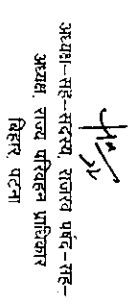 अध्यक्ष–सह–सदस्य, राजस्व पर्षद –सह–
अध्यक्ष, राज्य परिवहन प्राधिकार
बिहार, पटना